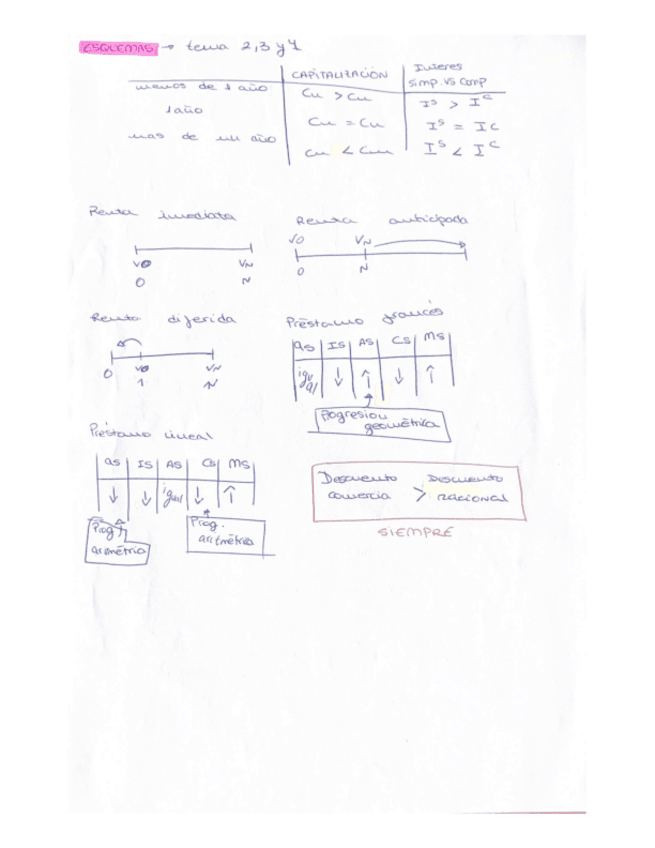 ESQUEMAS → tema 2,3 y 7
CAPITALIZACIÓN Interes simp. vs comp
menos de 1 año Cu > Cu Iˢ > Iᶜ
1 año Cu = Cu Iˢ = Ic
mas de un año Cu < Cu Iˢ < Iᶜ
Renta inmediata
V0 Vn
0 N
Renta anticipada
V0 Vn
0 N
Renta diferida
0 V0 Vn
1 N
Préstamo francés
as Is As Cs Ms
igual ↓ ↑ ↓ ↑
Progresion
geométrica
Prèstamo lineal
as Is As Cs Ms
↓ ↓ igual ↓ ↑
Prog.
aritmétrica
Descuento comercia > Descuento racional
SIEMPRE